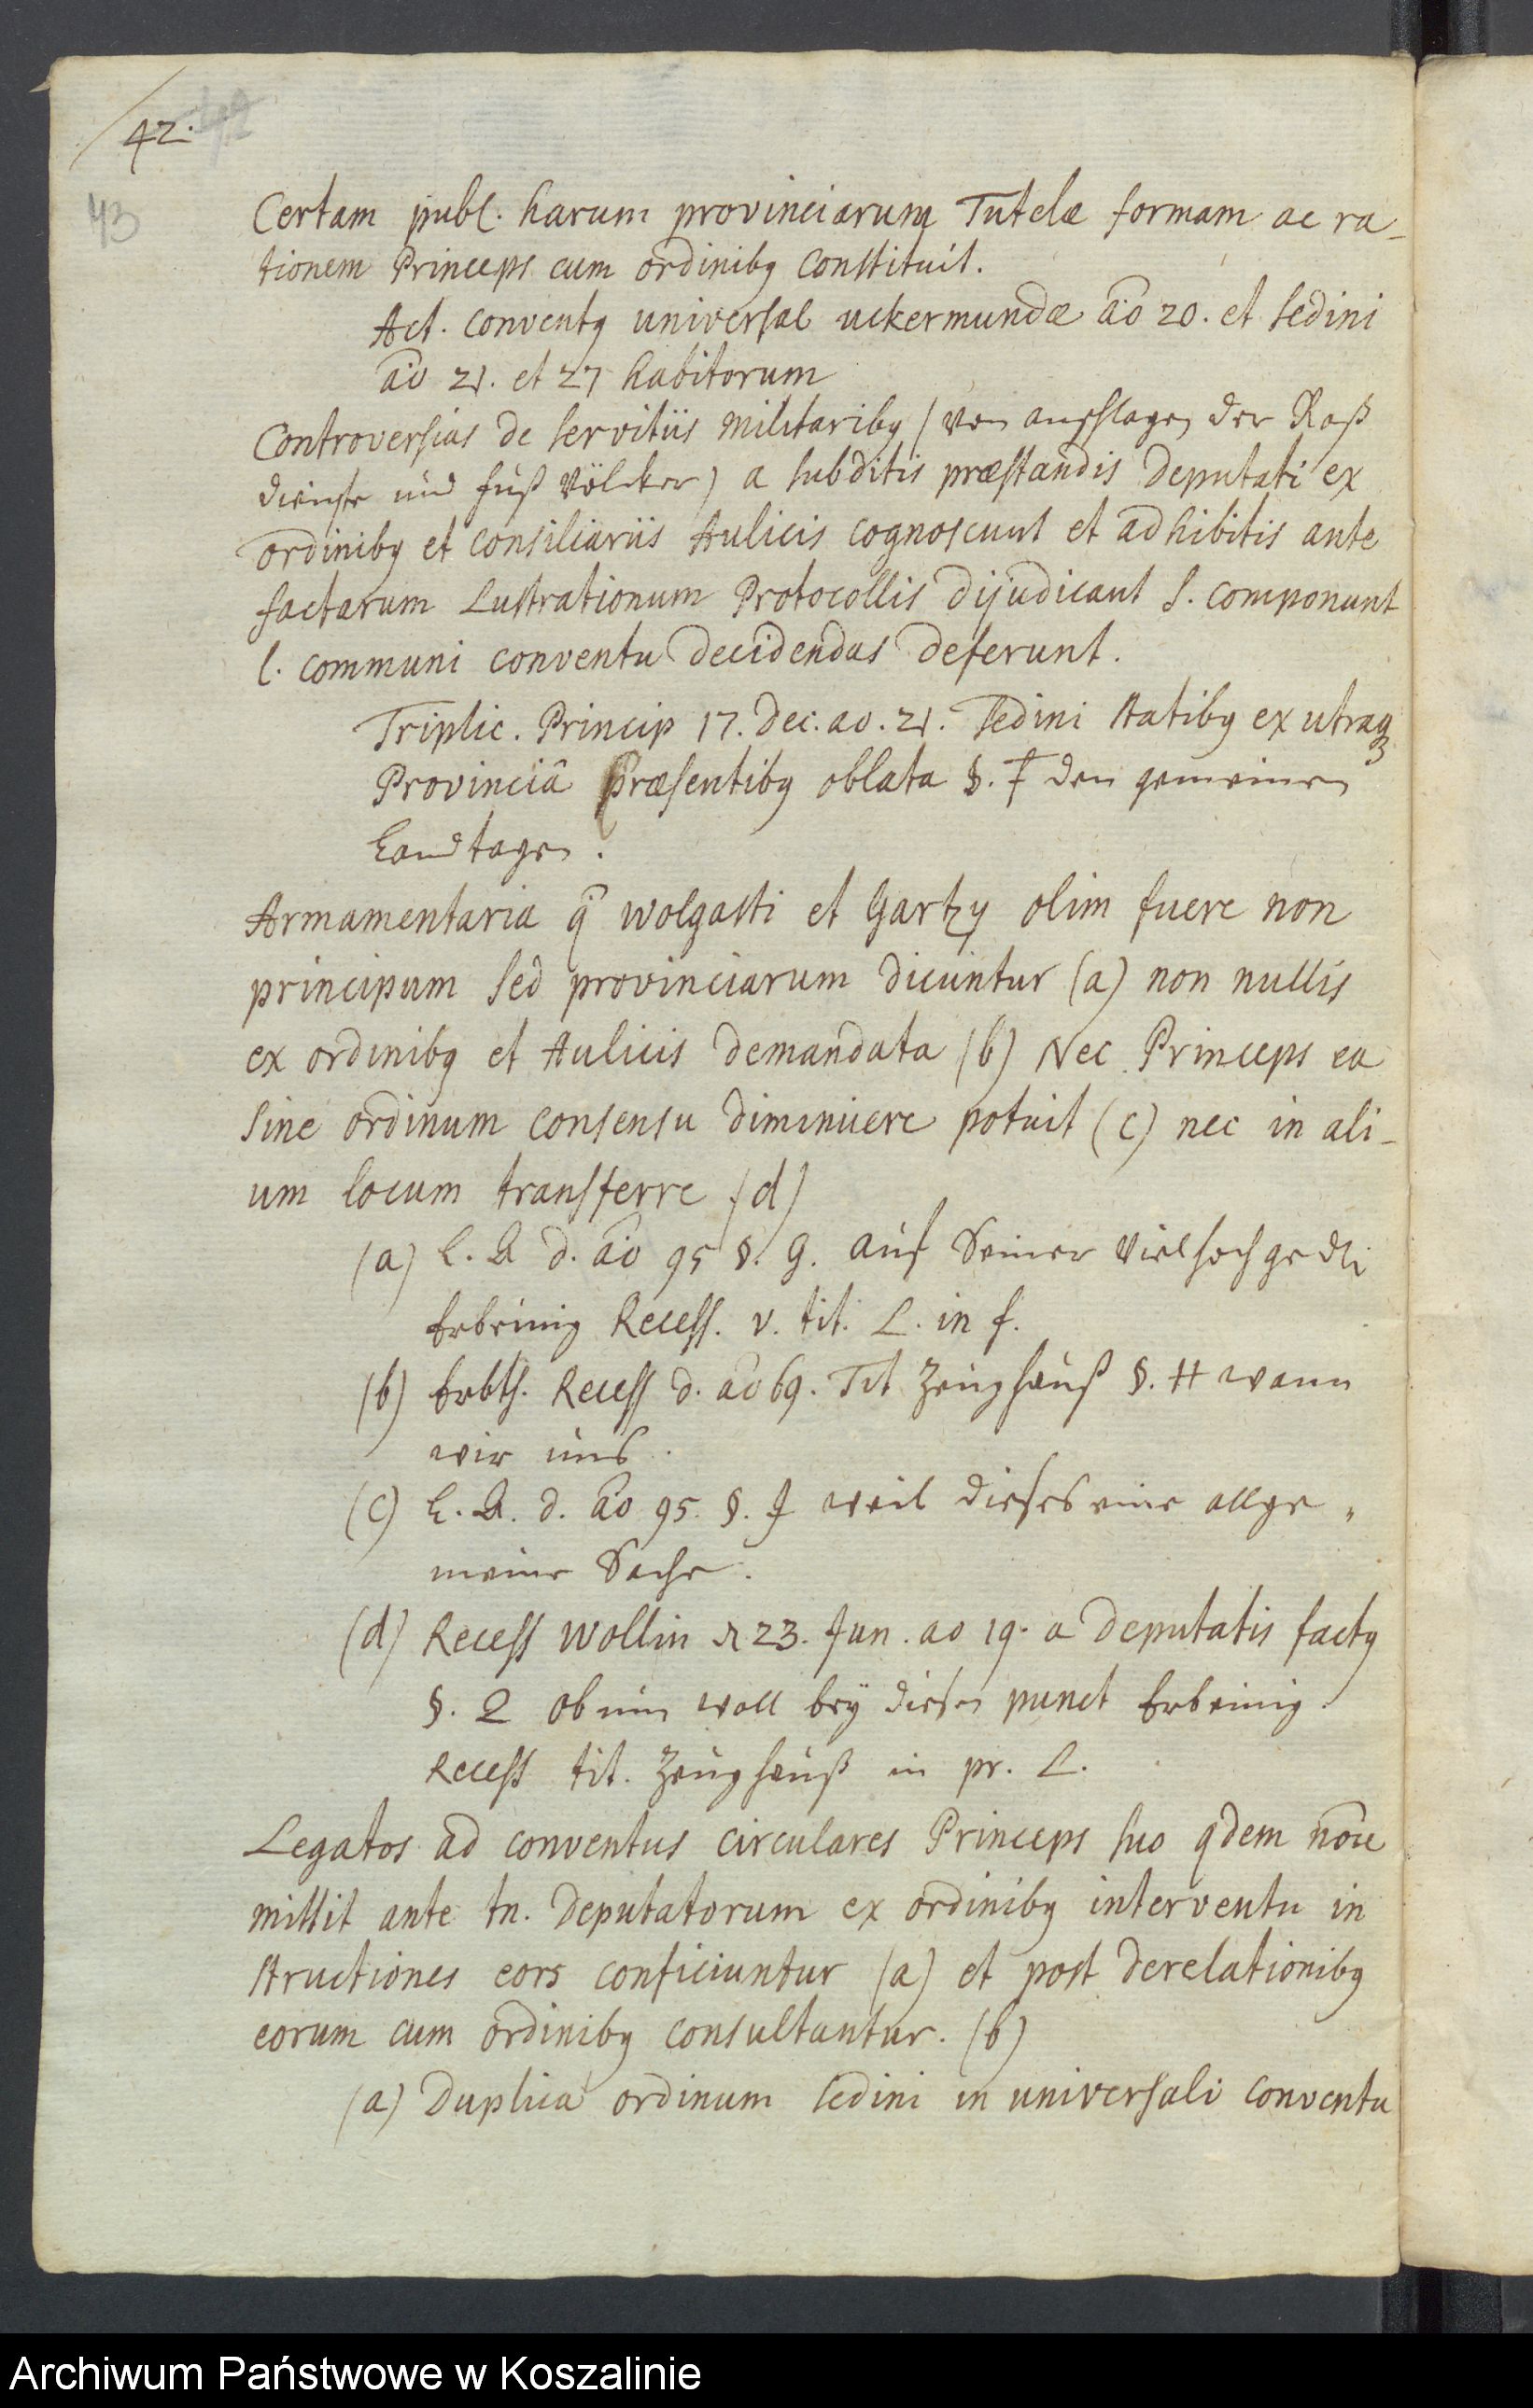 42.
43
Certam publ. harum provinciarum Tutelæ formam ac ra-
tionem Princeps cum ordinibꝰ constituit.
Act. conventꝰ universal uckermundæ ao 20. et Sedini
ao 21. et 27 habitorum
Controversias de servitiis militaribꝰ (von anschlagen der Roß
dienste und fuß Völcker) a subditis præstandis Deputati ex
ordinibꝰ et consiliariis Aulicis cognoscunt et adhibitis ante
factarum Lustrationum Protocollis dijudicant s. componunt
l. communi conventu decidendas deferunt.
Triplic. Princip 17. Dec. ao. 21. Sedini statibꝰ ex utraqꝫ
Provinciâ præsentibꝰ oblata §. ‡ den gemeinen
Landtagen.
Armamentaria q̃ wolgasti et Gartzy olim fuere non
principum sed provinciarum dicuntur (a) non nullis
ex ordinibꝰ et Aulicis demandata (b) Nec Princeps ea
sine ordinum consensu diminuere potuit (c) nec in ali-
um locum transferre (d)
(a) L. A d. ao 95 §. 9. auf Seiner
Erbeinig Recess. v. tit. L. in f.
(b) Erbth. Recess d. ao 69. Tit Zeughauß §. # wann
wir uns.
(c) L. A. d. ao 95. §. J weil dieses eine allge„
meine Sache.
(d) Recess Wollin 23. Jun. ao 19. a Deputatis factꝰ
§. 2 ob nun woll bey diesen punct Erbeinig.
Recess tit. Zeughauß in pr. L.
Legatos ad conventus circulares Princeps suo qdem nõie
mittit ante tn. Deputatorum ex ordinibꝰ interventu in
structiones eors conficiuntur (a) et post de relationibꝰ
eorum cum ordinibꝰ consultantur. (b)
(a) Duplica ordinum Sedini in universali conventu
Archiwum Państwowe w Koszalinie